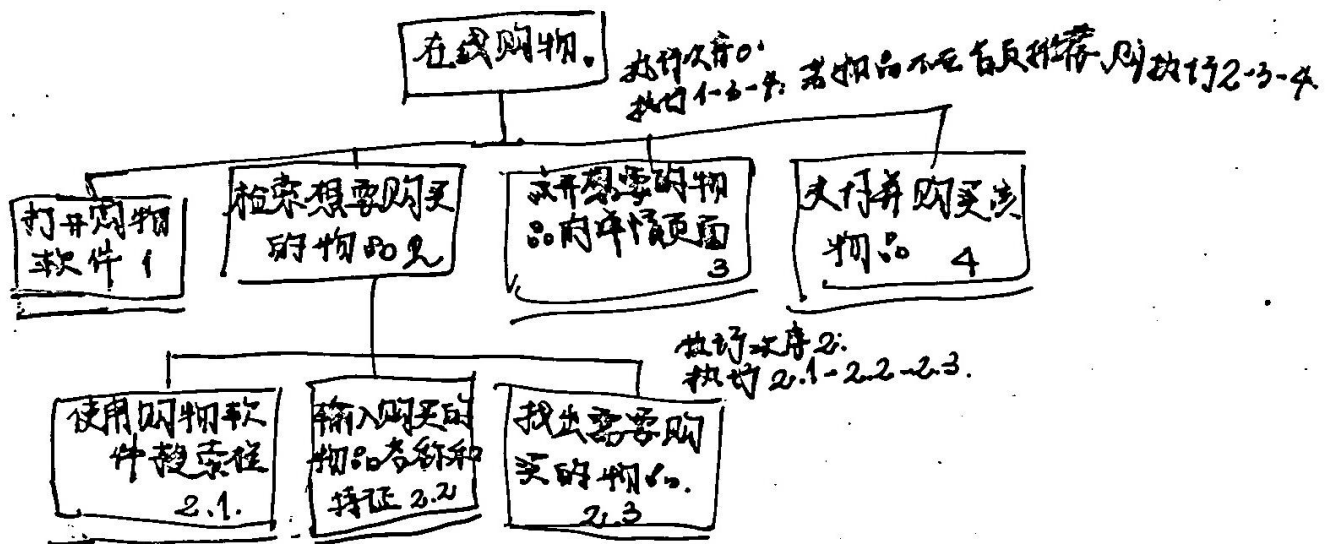 在线购物。
执行次序0:
执行1-3-4; 若物品不在首页推荐,则执行2-3-4
打开购物
软件 1
检索想要购买
的物品 2
点开想要的物
品的详情页面
3
支付并购买该
物品 4
执行次序2:
执行 2.1-2.2-2.3.
使用购物软
件搜索框
2.1.
输入购买的
物品名称和
特证 2.2
找出需要购
买的物品.
2.3